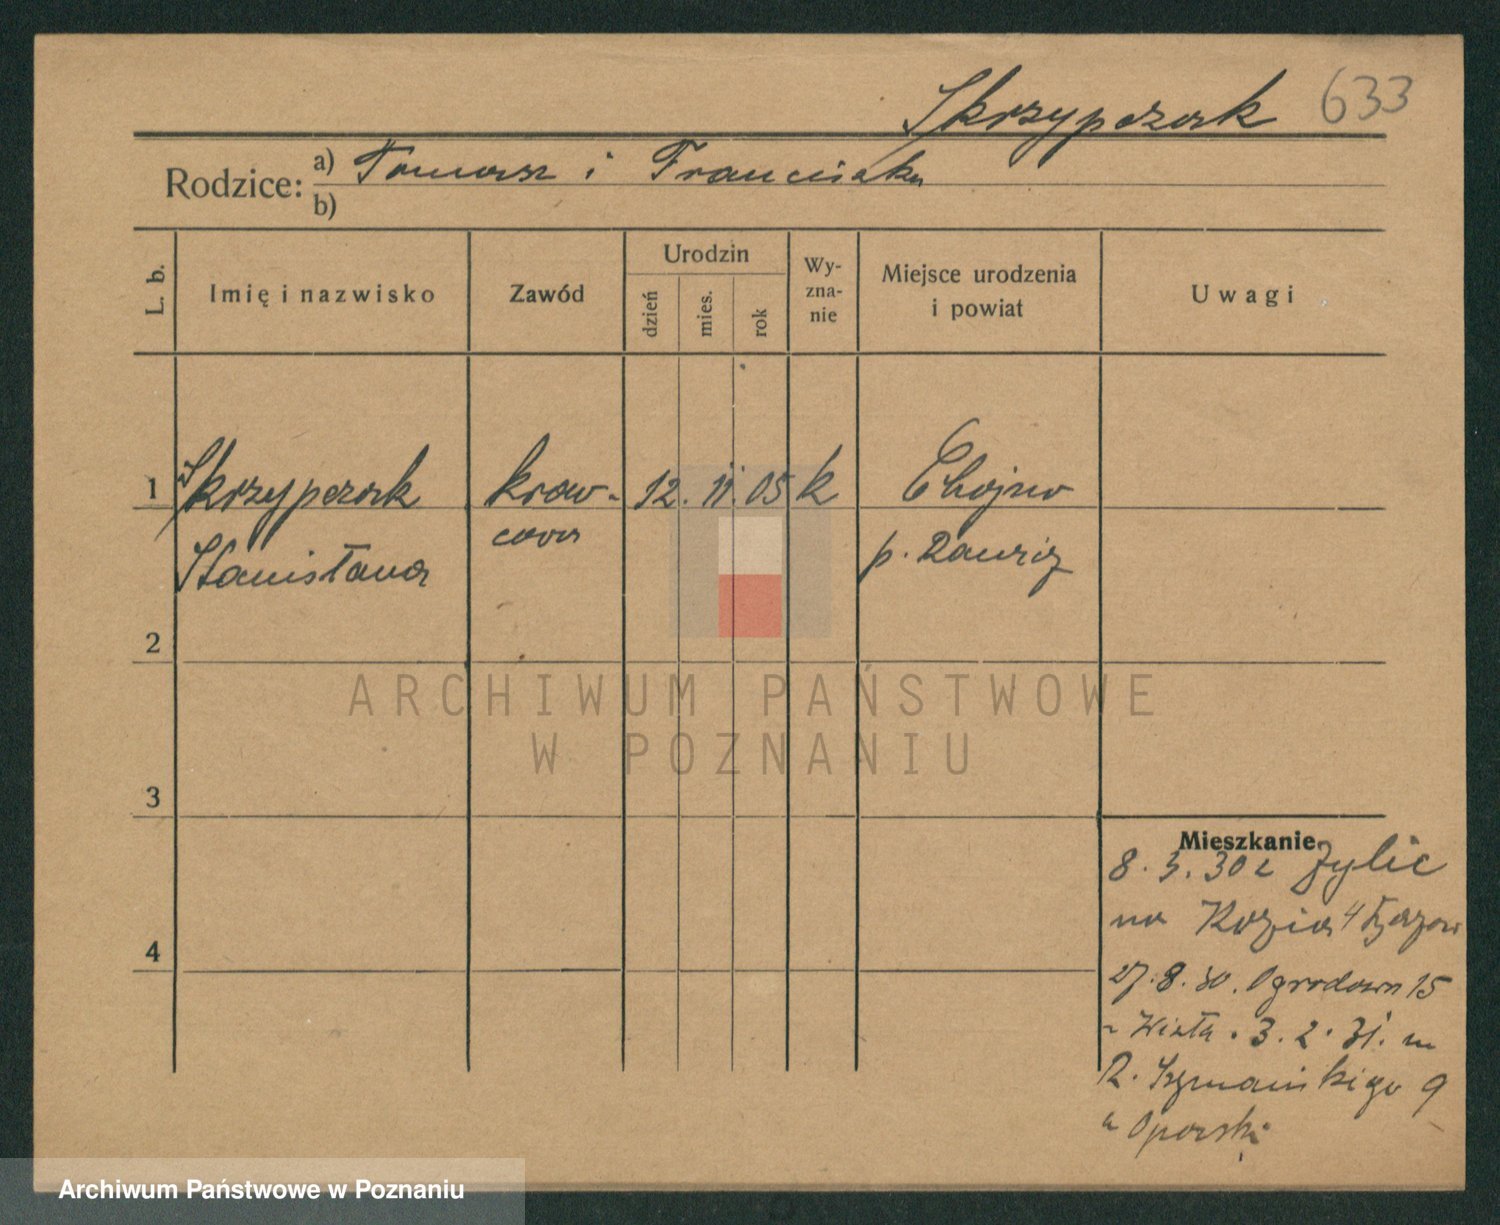 Skrzypczak 633
Rodzice: a) Tomasz i Franciszka
b)
L. b.
Imię i nazwisko
Zawód
Urodzin
dzień
mies.
rok
Wy-
zna-
nie
Miejsce urodzenia
i powiat
Uwagi
1 Skrzypczak kraw- 12. 11. 05 k Chojno
Stanisława cowa p. Rawicz
2
3
4
Mieszkanie
8. 3. 30 z Żylic
na Kozia 4
27. 8. 30. Ogrodowa 15
3. 2. 31. m
R. Szymańskiego 9
u Oporski
ARCHIWUM PAŃSTWOWE
W POZNANIU
Archiwum Państwowe w Poznaniu